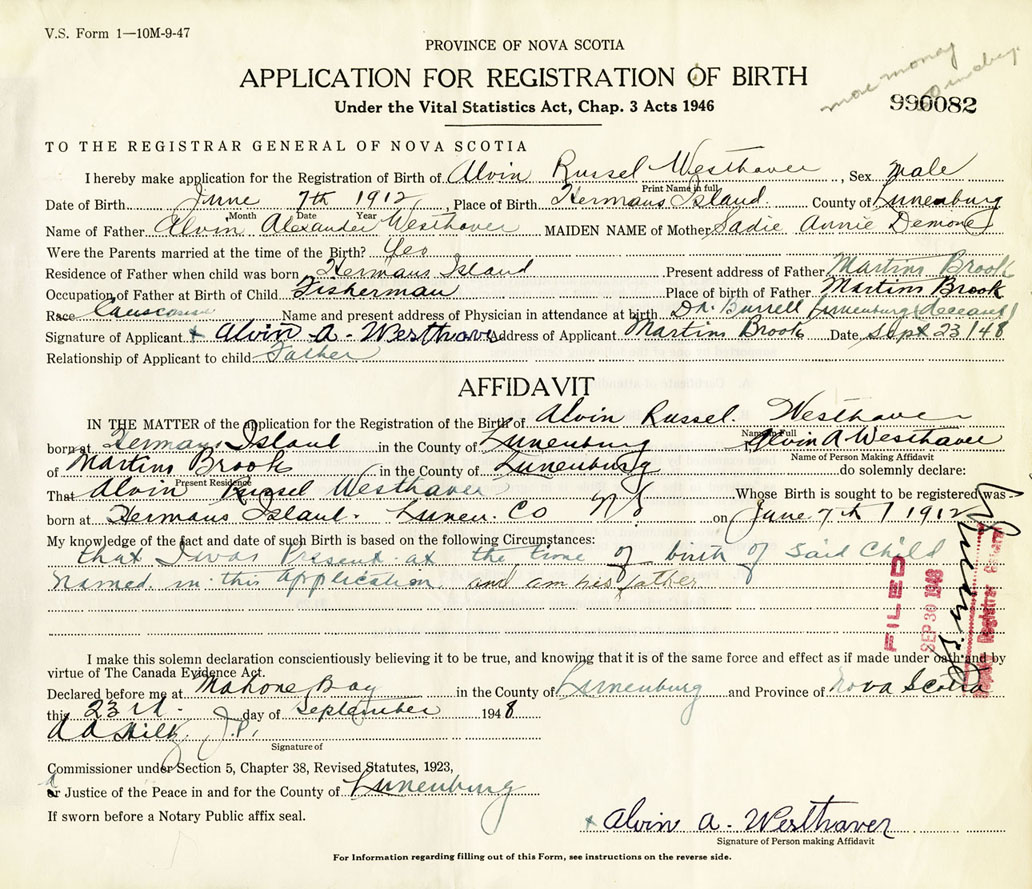 V.S. Form 1—10M-9-47
PROVINCE OF NOVA SCOTIA
APPLICATION FOR REGISTRATION OF BIRTH
Under the Vital Statistics Act, Chap. 3 Acts 1946
more money
990082
TO THE REGISTRAR GENERAL OF NOVA SCOTIA
I hereby make application for the Registration of Birth of Alvin Russel Westhaver, Sex Male
Print Name in full
Date of Birth June 7th 1912, Place of Birth Hermans Island. County of Lunenburg
Month Date Year
Name of Father Alvin Alexander Westhaver MAIDEN NAME of Mother Sadie Annie Demone
Were the Parents married at the time of the Birth? Yes
Residence of Father when child was born Hermans Island Present address of Father Martins Brook
Occupation of Father at Birth of Child Fisherman Place of birth of Father Martins Brook
Race Name and present address of Physician in attendance at birth Dr. Burrell Lunenburg
Signature of Applicant x Alvin A. Westhaver Address of Applicant Martins Brook Date Sept 23/48
Relationship of Applicant to child Father
AFFIDAVIT
IN THE MATTER of the application for the Registration of the Birth of Alvin Russel. Westhaver
Name in Full
born at Hermans Island in the County of Lunenburg Alvin A Westhaver
Name of Person Making Affidavit
of Martins Brook in the County of Lunenburg do solemnly declare:
Present Residence
That Alvin Russel Westhaver Whose Birth is sought to be registered was
born at Hermans Island. Lunen. Co NS on June 7th 1912
My knowledge of the fact and date of such Birth is based on the following Circumstances:
that I was Present at the time of birth of said Child
Named in this application and am his father
FILED
SEP 30 1948
I make this solemn declaration conscientiously believing it to be true, and knowing that it is of the same force and effect as if made under oath and by
virtue of The Canada Evidence Act.
Declared before me at Mahone Bay in the County of Lunenburg and Province of Nova Scotia
this 23rd day of September 1948
J.P.
Signature of
Commissioner under Section 5, Chapter 38, Revised Statutes, 1923,
or Justice of the Peace in and for the County of Lunenburg
If sworn before a Notary Public affix seal.
x Alvin A. Westhaver
Signature of Person making Affidavit
For Information regarding filling out of this Form, see instructions on the reverse side.